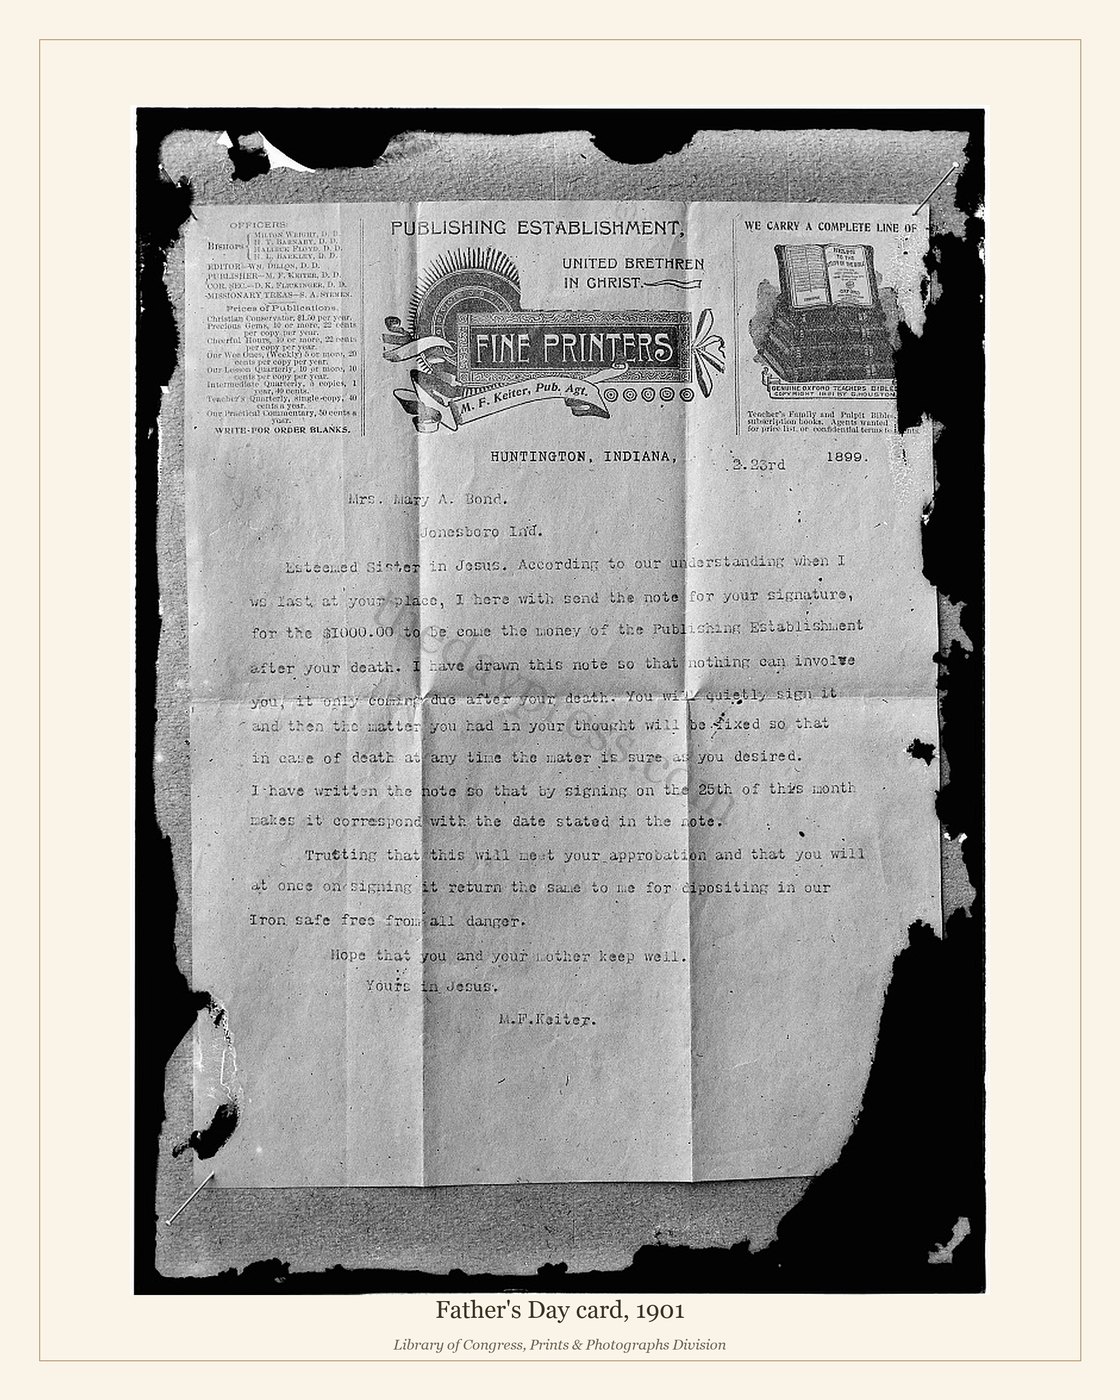 OFFICERS:
Bishops
MILTON WRIGHT, D. D.
H. T. BARNABY, D. D.
HALLECK FLOYD, D. D.
H. L. BARKLEY, D. D.
EDITOR—WM. DILLON, D. D.
PUBLISHER—M. F. KEITER, D. D.
COR. SEC.—D. K. FLICKINGER, D. D.
MISSIONARY TREAS—S. A. STEMEN.
Prices of Publications.
Christian Conservator, $1.50 per year.
Precious Gems, 10 or more, 22 cents
per copy per year.
Cheerful Hours, 10 or more, 22 cents
per copy per year.
Our Wee Ones, (Weekly) 5 or more, 20
cents per copy per year.
Our Lesson Quarterly, 10 or more, 10
cents per copy per year.
Intermediate Quarterly, 5 copies, 1
year, 40 cents.
Teacher's Quarterly, single copy, 40
cents a year.
Our Practical Commentary, 50 cents a
year.
WRITE FOR ORDER BLANKS.
PUBLISHING ESTABLISHMENT,
UNITED BRETHREN
IN CHRIST.
FINE PRINTERS
M. F. Keiter, Pub. Agt.
WE CARRY A COMPLETE LINE OF
GENUINE OXFORD TEACHERS BIBLE
COPYRIGHT 1891 BY G. HOUSTON
Teacher's Family and Pulpit Bibles,
subscription books. Agents wanted
for price list, or confidential terms to
HUNTINGTON, INDIANA, 2.23rd 1899.
Mrs. Mary A. Bond.
Jonesboro Ind.
Esteemed Sister in Jesus. According to our understanding when I
ws last at your place, I here with send the note for your signature,
for the $1000.00 to be come the money of the Publishing Establishment
after your death. I have drawn this note so that nothing can involve
you, it only coming due after your death. You will quietly sign it
and then the matter you had in your thought will be fixed so that
in case of death at any time the mater is sure as you desired.
I have written the note so that by signing on the 25th of this month
makes it correspond with the date stated in the note.
Trutting that this will meet your approbation and that you will
at once on signing it return the same to me for dipositing in our
Iron safe free from all danger.
Hope that you and your mother keep well.
Yours in Jesus.
M.F.Keiter.
Father's Day card, 1901
Library of Congress, Prints & Photographs Division